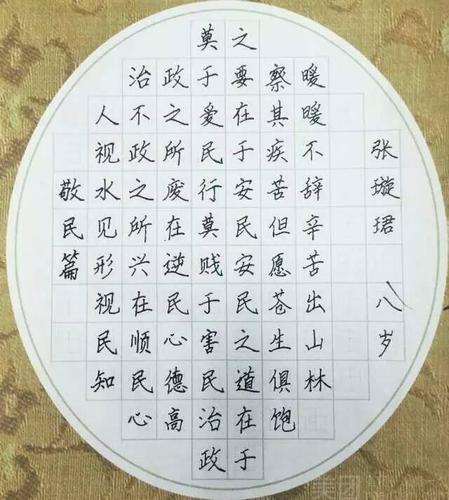 敬民篇
人视水见形视民知
治不政之所兴在顺民心
政之所废在逆民心德高
莫于爱民行莫贱于害民治政
之要在于安民安民之道在于
察其疾苦但愿苍生俱饱
暖暖不辞辛苦出山林
张璇珺 八岁
美团